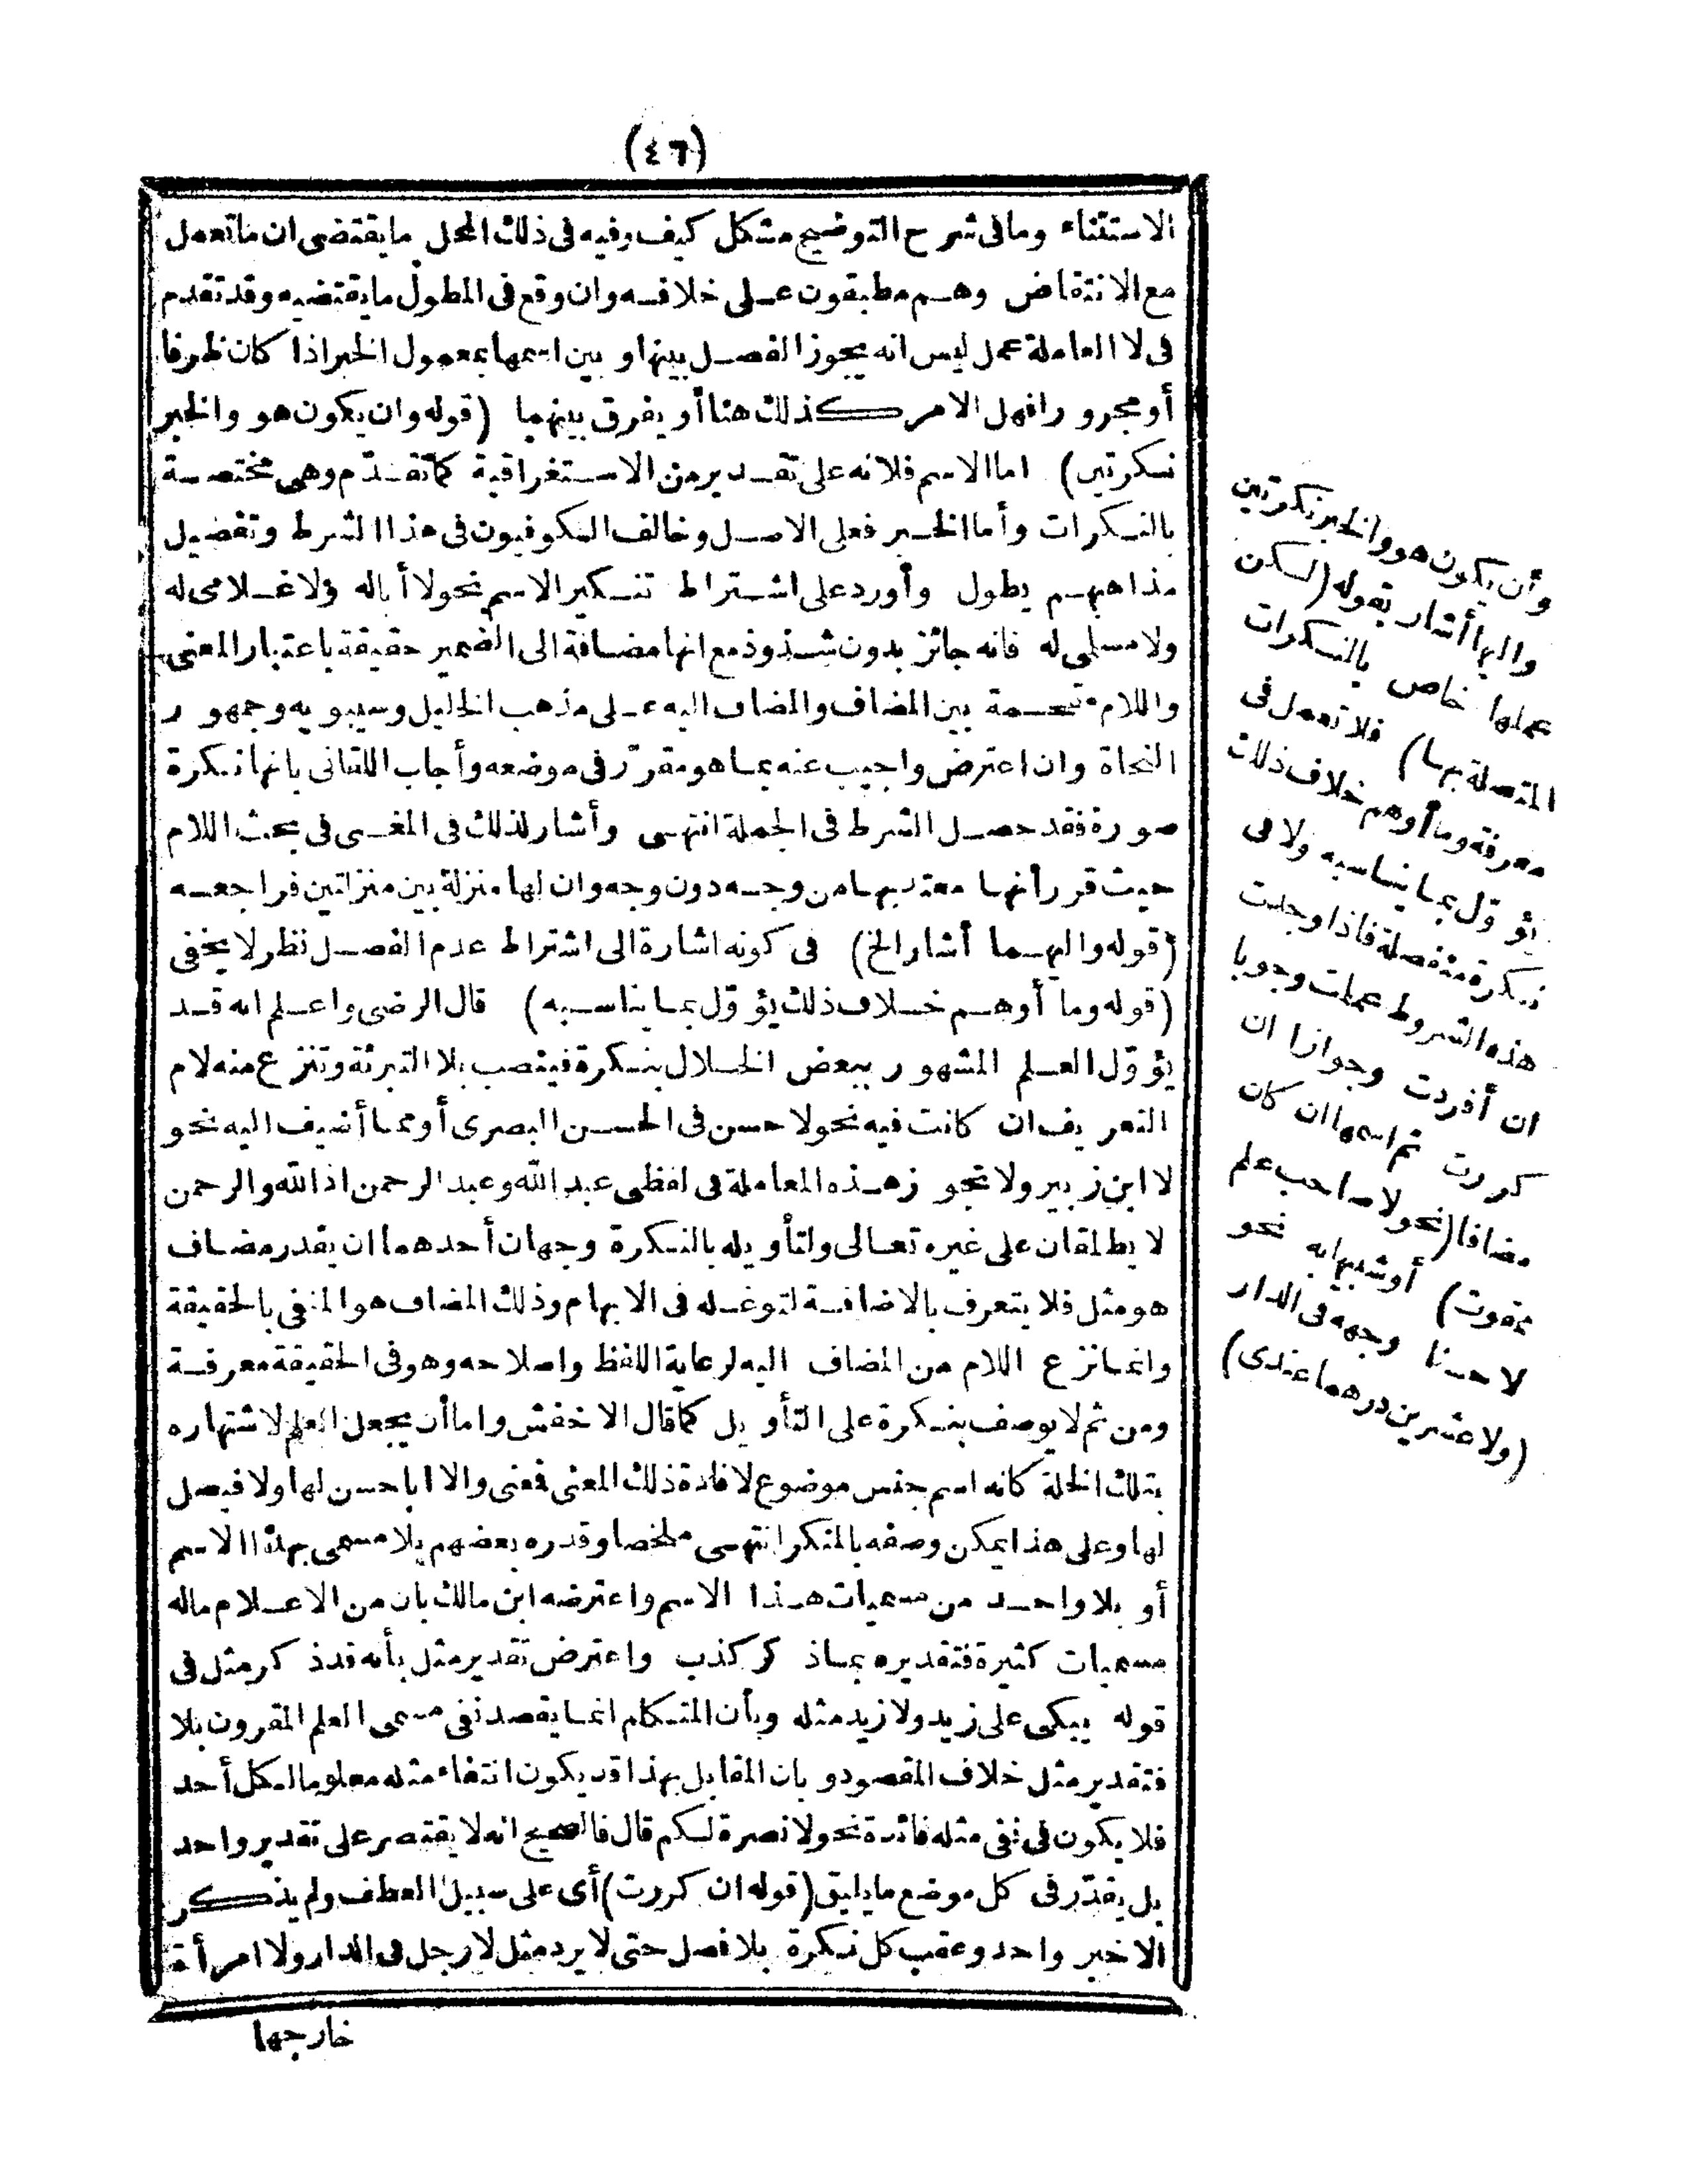 (٤٦)
الاستثناء وما فى شرح التوضيح مشكل كيف وفيه فى ذلك المحل ما يقتضى ان ما تعمل
مع الانتقاض وهم مطبقون على خلافه وان وقع فى المطول ما يقتضيه وقد تقدم
فى لا العاملة عمل ليس انه يجوز الفصل بينها و بين اسمها بمعمول الخبر اذا كان ظرفا
أو مجرو را فهل الامر كذلك هنا أو يفرق بينهما (قوله وان يكون هو والخبر
نكرتين) اما الاسم فلانه على تقدير من الاستغراقية كما تقدّم وهى مختصة
بالنكرات وأما الخبر فعلى الاصل وخالف الكوفيون فى هذا الشرط وتفصيل
مذاهبهم يطول وأورد على اشتراط تنكير الاسم نحو لا أباله ولا غلامى له
ولا مسلمى له فانه جائز بدون شذوذ مع انها مضافة الى الضمير حقيقة باعتبار المعنى
واللام مقحمة بين المضاف والمضاف اليه على مذهب الخليل وسيبويه وجمهو ر
النحاة وان اعترض واجيب عنه بما هو مقرّر فى موضعه وأجاب اللقانى بانها نكرة
صورة فقد حصل الشرط فى الجملة انتهى وأشار لذلك فى المغنى فى بحث اللام
حيث قرر أنها معتد بها من وجه دون وجه وان لها منزلة بين منزلتين فراجعه
(قوله واليهما أشار الخ) فى كونه اشارة الى اشتراط عدم الفصل نظر لا يخفى
(قوله وما أوهم خلاف ذلك يؤوّل بما يناسبه) قال الرضى واعلم انه قد
يؤوّل العلم المشهور ببعض الخلال بنكرة فينصب بلا التبرئة وتنزع منه لام
التعريف ان كانت فيه نحو لا حسن فى الحسن البصرى أو مما أضيف اليه نحو
لا ابن زبير ولا تجو زهذه المعاملة فى لفظى عبد الله وعبد الرحمن اذ الله والرحمن
لا يطلقان على غيره تعالى ولتأويله بالنكرة وجهان أحدهما ان يقدر مضاف
هو مثل فلا يتعرف بالاضافة لتوغله فى الابهام وذلك المضاف هو المنفى بالحقيقة
وانما نزع اللام من المضاف اليه لرعاية اللفظ واصلاحه وهو فى الحقيقة معرفة
ومن ثم لا يوصف بنكرة على التأويل كما قال الاخفش واما أن يجعل العلم لاشتهاره
بتلك الخلة كانه اسم جنس موضوع لافادة ذلك المعنى فمعنى ولا ابا حسن لها ولا فيصل
لها وعلى هذا يمكن وصفه بالمنكر انتهى ملخصا وقدره بعضهم بلا مسمى بهذا الاسم
أو بلا واحد من مسميات هذا الاسم واعترضه ابن مالك بان من الاعلام ماله
مسميات كثيرة فتقديره بماذ كر كذب واعترض تقدير مثل بأنه قد ذ كر مثل فى
قوله يبكى على زيد ولا زيد مثله وبأن المتكلم انما يقصد نفى مسمى العلم المقرون بلا
فتقدير مثل خلاف المقصود و بان المقابل بهذا قد يكون انتفاء مثله معلوما لكل أحد
فلا يكون فى نفى مثله فائدة نحو لا نصرة لكم قال فالصحيح انه لا يقتصر على تقدير واحد
بل يقدّر فى كل موضع ما يليق (قوله ان كررت) أى على سبيل العطف ولم يذكر
الاخبر واحد وعقب كل نكرة بلا فصل حتى لا يرد مثل لا رجل فى الدار ولا امرأة
خارجها
وأن يكون هو والخبر نكرتين
واليها أشار بقوله (لكن
عملها خاص بالنكرات
المتصلة بها) فلا تعمل فى
معرفة وما أوهم خلاف ذلك
يؤوّل بما يناسبه ولا فى
نكرة منفصلة فاذا وجدت
هذه الشروط عملت وجوبا
ان أفردت وجوازا ان
كررت ثم اسمها ان كان
مضافا (نحو لا صاحب علم
ممقوت) أو شبيها به نحو
لا حسنا وجهه فى الدار
(ولا عشرين درهما عندى)